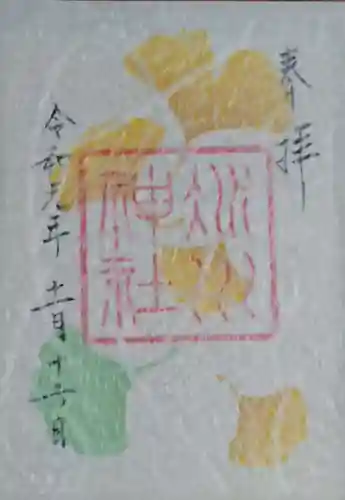 奉拝
氷川
神社
令和元年 十一月十六日